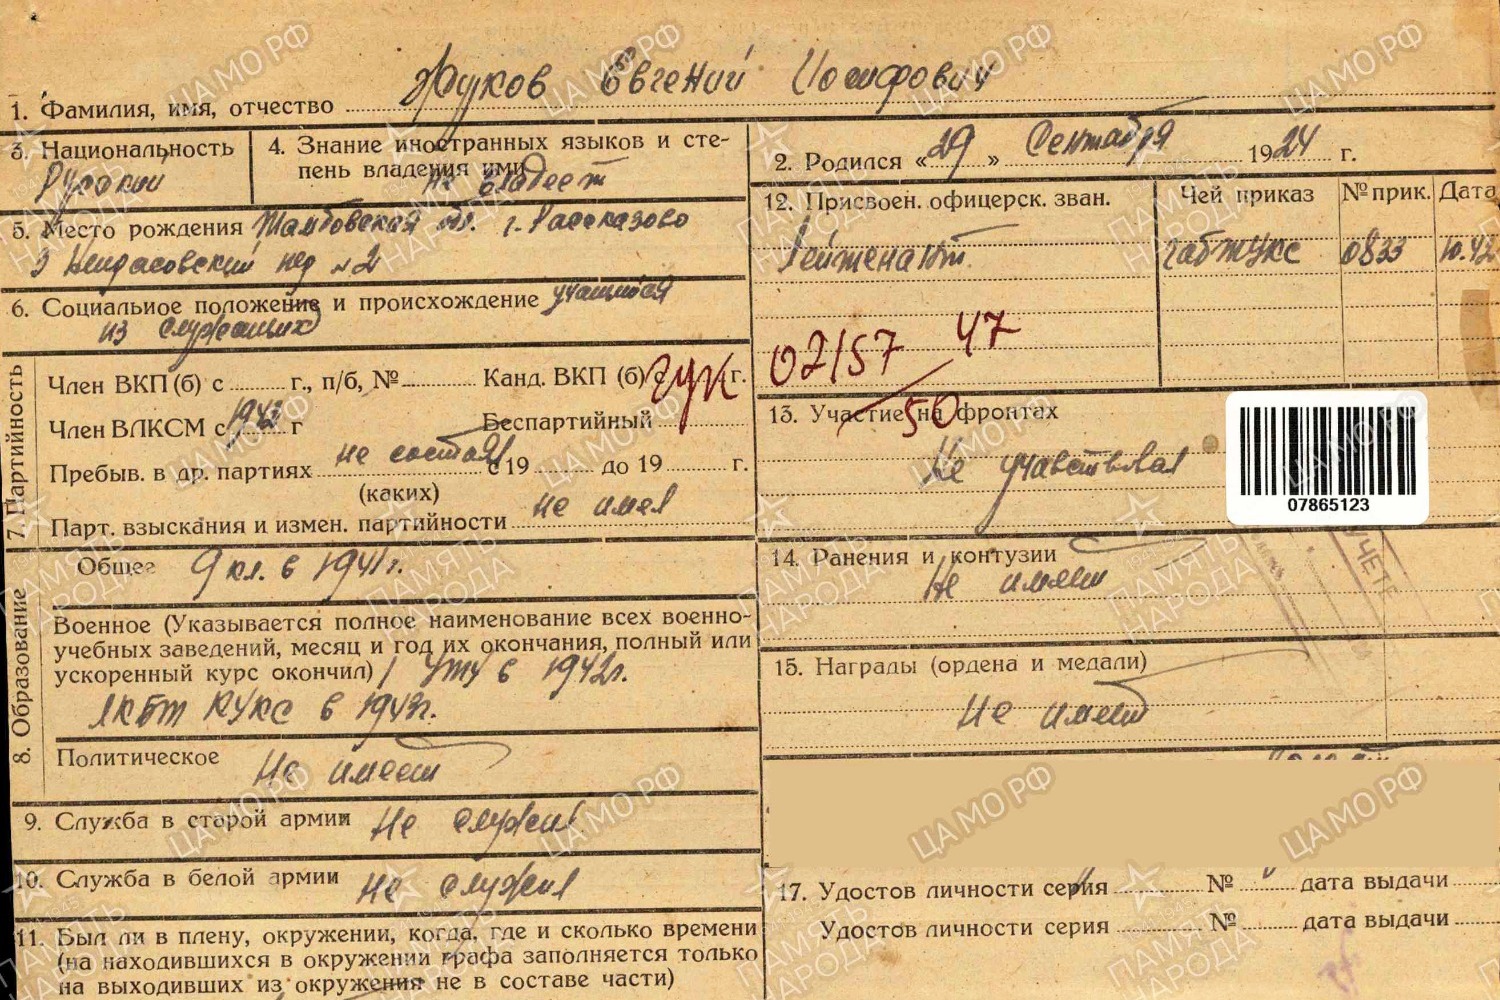 1. Фамилия, имя, отчество Жуков Евгений Иосифович
3. Национальность Русский
4. Знание иностранных языков и сте-
пень владения ими не владеет
2. Родился « 29 » Сентября 1924 г.
5. Место рождения Тамбовская обл. г. Рассказово
пер №2
6. Социальное положение и происхождение учащийся
из служащих
7. Партийность
Член ВКП(б) с г., п/б, № Канд. ВКП (б) с г.
ГУК
Член ВЛКСМ с 1942 г Беспартийный
Пребыв. в др. партиях не состоял с 19 до 19 г.
(каких)
Парт. взыскания и измен. партийности не имел
8. Образование
Общее 9 кл. в 1941г.
Военное (Указывается полное наименование всех военно-
учебных заведений, месяц и год их окончания, полный или
ускоренный курс окончил) УТУ в 1942г.
ЛКБТ КУКС в 1943г.
Политическое Не имеет
9. Служба в старой армии Не служил
10. Служба в белой армии Не служил
11. Был ли в плену, окружении, когда, где и сколько времени
(на находившихся в окружении графа заполняется только
на выходивших из окружения не в составе части)
12. Присвоен. офицерск. зван. Чей приказ № прик. Дата
Лейтенант ГАБТУКС 0833 10.42
02157 47
50
13. Участие на фронтах
Не участвовал
07865123
14. Ранения и контузии
Не имеет
УЧЕТЕ
15. Награды (ордена и медали)
Не имеет
17. Удостов личности серия № дата выдачи
Удостов личности серия № дата выдачи
ЦАМО РФ
ПАМЯТЬ НАРОДА